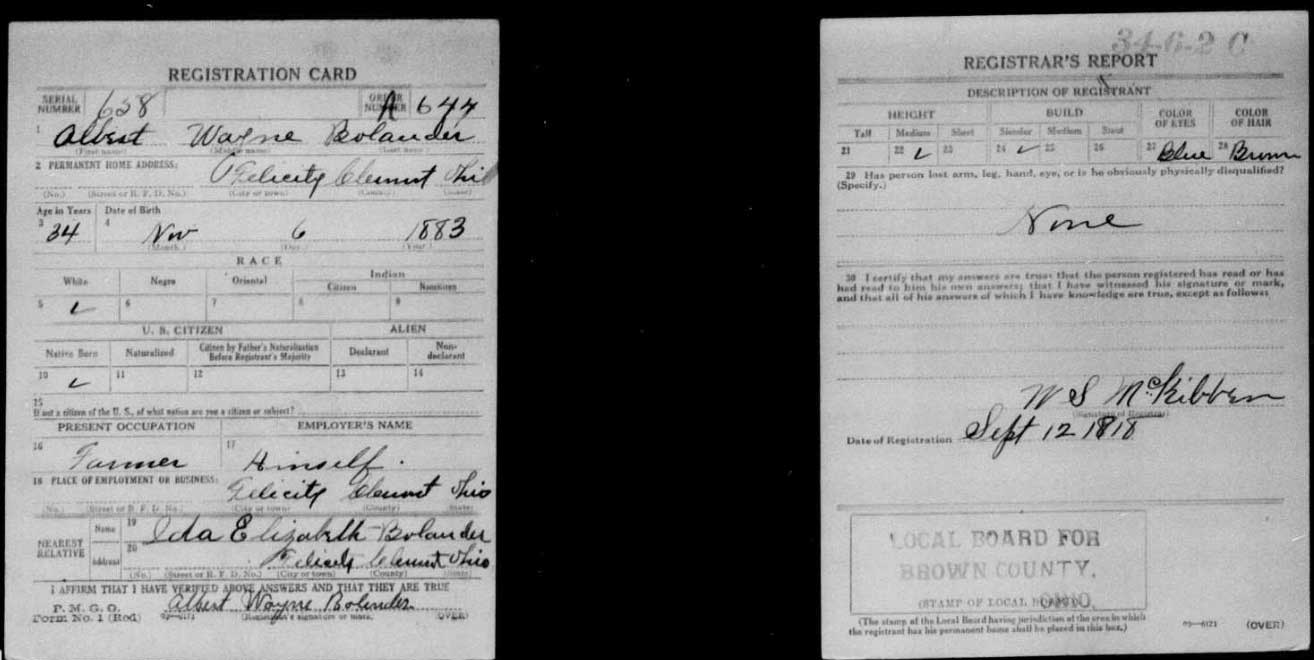 REGISTRATION CARD
SERIAL NUMBER 638 ORDER NUMBER A 644
1 Albert Wayne Bolander
(First name) (Middle name) (Last name)
2 PERMANENT HOME ADDRESS:
Felicity Clermt Ohio
(No.) (Street or R. F. D. No.) (City or town) (County) (State)
Age in Years Date of Birth
3 34 4 Nov 6 1883
(Month.) (Day.) (Year.)
RACE
White Negro Oriental Indian
Citizen Noncitizen
5 ✓ 6 7 8 9
U. S. CITIZEN ALIEN
Native Born Naturalized Citizen by Father's Naturalization Before Registrant's Majority Declarant Non-declarant
10 ✓ 11 12 13 14
15
If not a citizen of the U. S., of what nation are you a citizen or subject?
PRESENT OCCUPATION EMPLOYER'S NAME
16 Farmer 17 Himself.
18 PLACE OF EMPLOYMENT OR BUSINESS:
Felicity Clermt Ohio
(No.) (Street or R. F. D. No.) (City or town) (County) (State)
NEAREST RELATIVE
Name 19 Ida Elizabeth Bolander
Address 20 Felicity Clermt Ohio
(No.) (Street or R. F. D. No.) (City or town) (County) (State)
I AFFIRM THAT I HAVE VERIFIED ABOVE ANSWERS AND THAT THEY ARE TRUE
P. M. G. O.
Form No. 1 (Red) 03—6171 Albert Wayne Bolander
(Registrant's signature or mark) (OVER)
34-6-2 C
REGISTRAR'S REPORT
DESCRIPTION OF REGISTRANT
HEIGHT BUILD COLOR OF EYES COLOR OF HAIR
Tall Medium Short Slender Medium Stout
21 22 ✓ 23 24 ✓ 25 26 27 Blue 28 Brown
29 Has person lost arm, leg, hand, eye, or is he obviously physically disqualified?
(Specify.)
None
30 I certify that my answers are true; that the person registered has read or has
had read to him his own answers; that I have witnessed his signature or mark,
and that all of his answers of which I have knowledge are true, except as follows:
W S McKibben
(Signature of Registrar)
Date of Registration Sept 12 1818
LOCAL BOARD FOR
BROWN COUNTY,
OHIO.
(STAMP OF LOCAL BOARD)
(The stamp of the Local Board having jurisdiction of the area in which
the registrant has his permanent home shall be placed in this box.)
03—6171 (OVER)